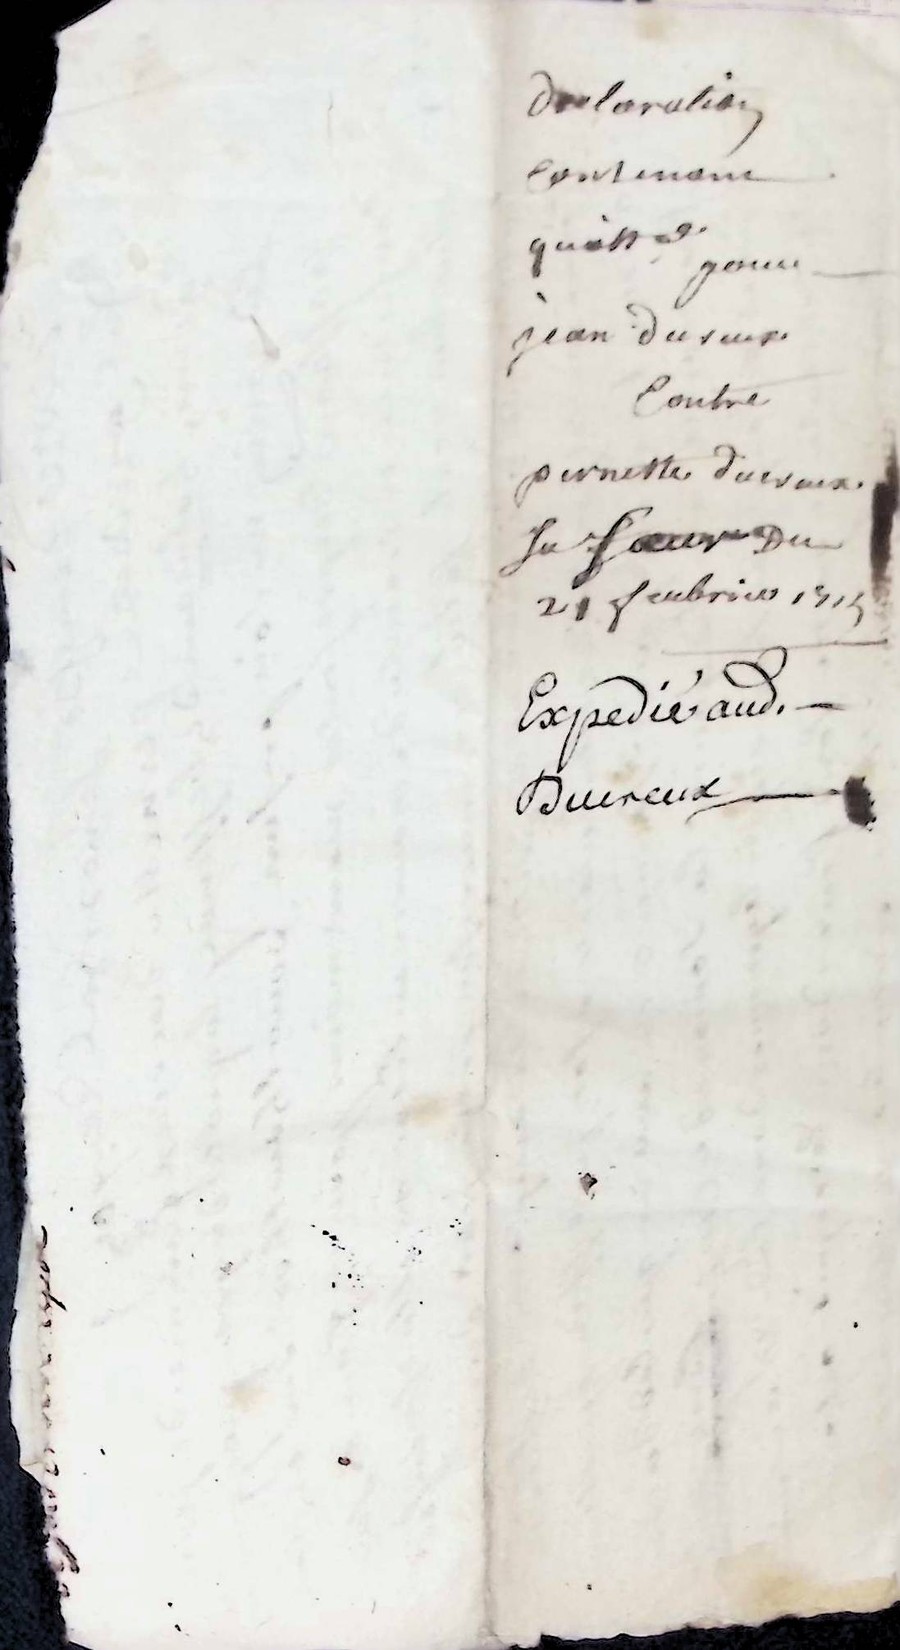 declaration
Contenant
quitt.e
pour
jean Ducreux
Contre
pernette ducreux
Sa Sœur Du
21 feubrier 1715
Expedié aud.
Ducreux